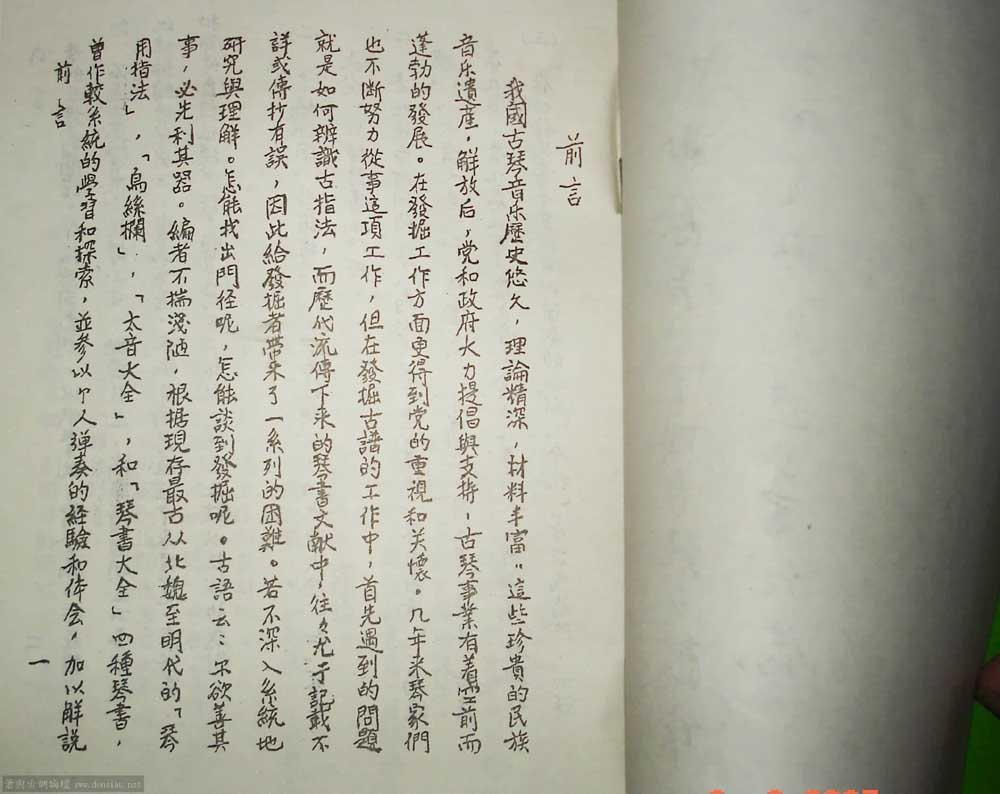 前言
我國古琴音乐歷史悠久，理論精深，材料丰富。這些珍貴的民族
音乐遺產，解放后，党和政府大力提倡與支持，古琴事業有着空前而
蓬勃的發展。在發掘工作方面更得到党的重視和关懷。几年来琴家們
也不断努力從事這項工作，但在發掘古譜的工作中，首先遇到的問題
就是如何辨識古指法，而歷代流傳下来的琴書文献中，往々尤于記載不
詳或傳抄有誤，因此給發掘者帶来了一系列的困難。若不深入系統地
研究與理解。怎能找出門径呢，怎能談到發掘呢。古語云：不欲善其
事，必先利其器。編者不揣淺陋，根据現存最古从北魏至明代的「琴
用指法」，「烏絲欄」，「太音大全」，和「琴書大全」四種琴書，
曾作較系統的學習和探索，並参以个人彈奏的經驗和体会，加以解説
前言
一
www.donsiau.net